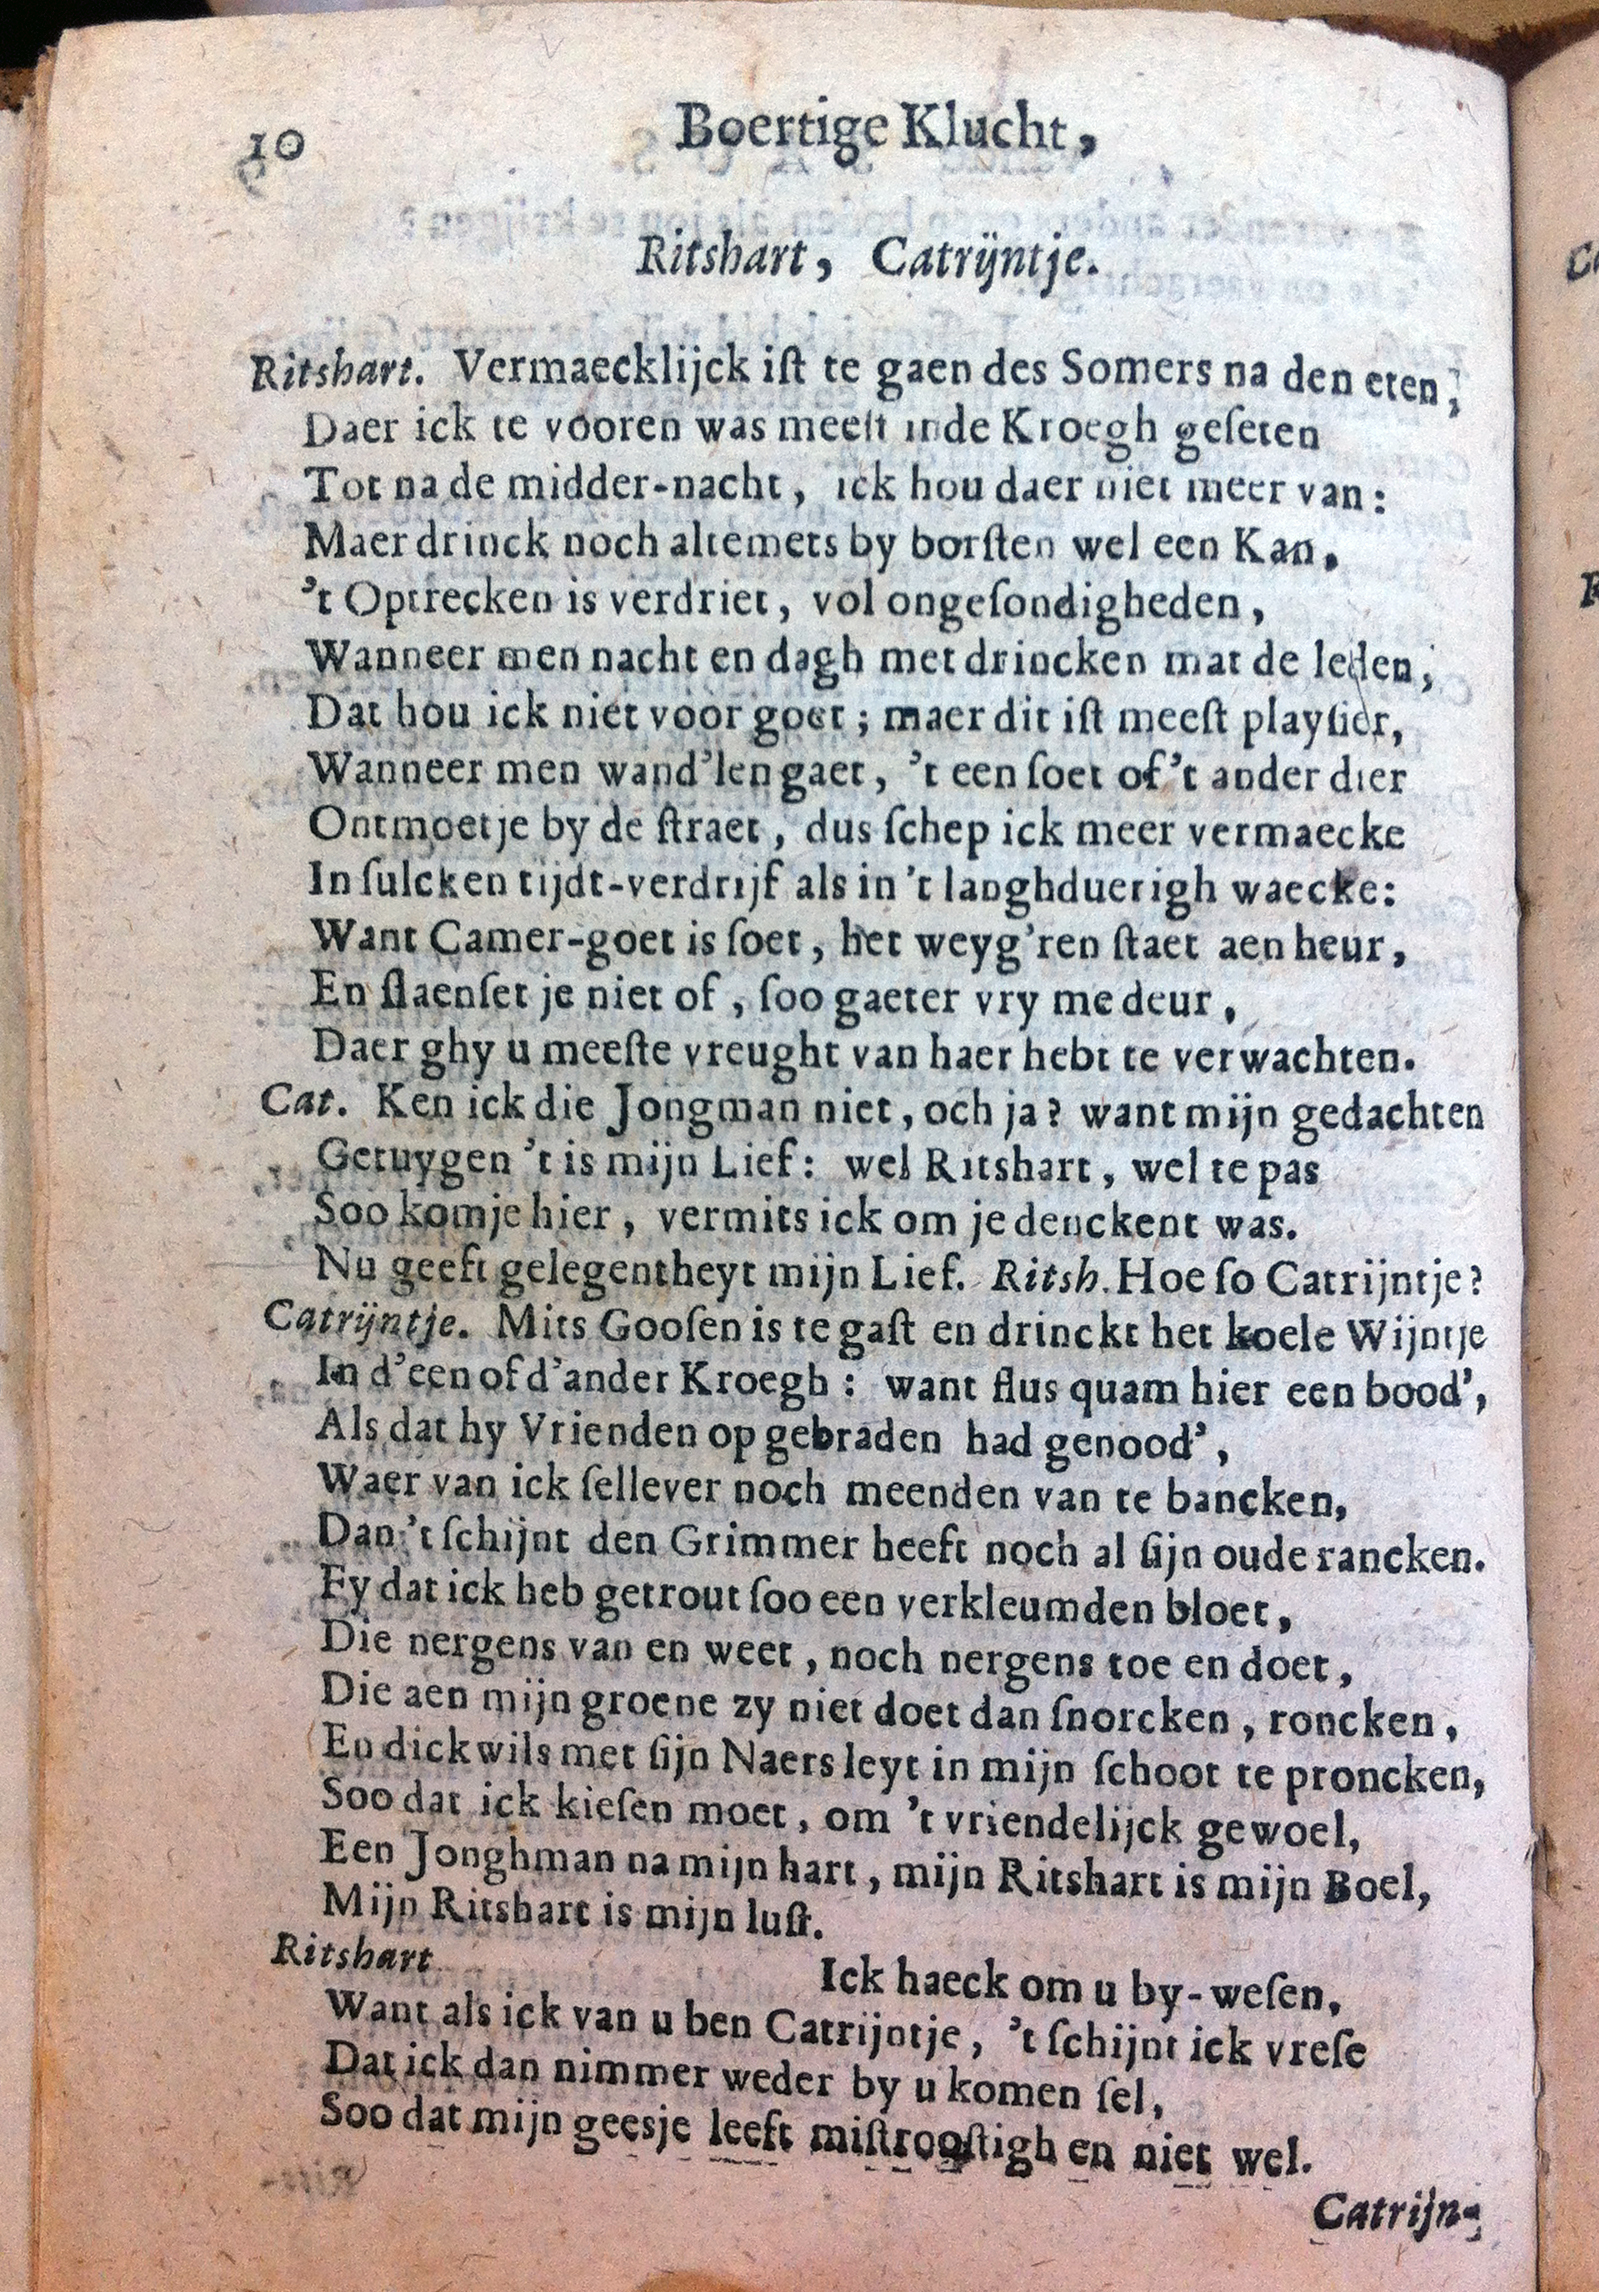 10 Boertige Klucht,
Ritshart, Catrijntje.
Ritshart. Vermaecklijck iſt te gaen des Somers na den eten;
Daer ick te vooren was meeſt inde Kroegh geſeten
Tot na de midder-nacht, ick hou daer niet meer van:
Maer drinck noch altemets by borſten wel een Kan,
't Optrecken is verdriet, vol ongeſondigheden,
Wanneer men nacht en dagh met drincken mat de leden,
Dat hou ick niet voor goet; maer dit iſt meeſt playſier,
Wanneer men wand'len gaet, 't een ſoet of 't ander dier
Ontmoetje by de ſtraet, dus ſchep ick meer vermaecke
In ſulcken tijdt-verdrijf als in 't langhduerigh waecke:
Want Camer-goet is ſoet, het weyg'ren ſtaet aen heur,
En ſlaenſet je niet of, ſoo gaeter vry me deur,
Daer ghy u meeſte vreught van haer hebt te verwachten.
Cat. Ken ick die Jongman niet, och ja? want mijn gedachten
Getuygen 't is mijn Lief: wel Ritshart, wel te pas
Soo komje hier, vermits ick om je denckent was.
Nu geeft gelegentheyt mijn Lief. Ritsh. Hoe ſo Catrijntje?
Catrijntje. Mits Gooſen is te gaſt en drinckt het koele Wijntje
In d'een of d'ander Kroegh: want flus quam hier een bood',
Als dat hy Vrienden op gebraden had genood',
Waer van ick ſellever noch meenden van te bancken,
Dan 't ſchijnt den Grimmer heeft noch al ſijn oude rancken.
Fy dat ick heb getrout ſoo een verkleumden bloet,
Die nergens van en weet, noch nergens toe en doet,
Die aen mijn groene zy niet doet dan ſnorcken, roncken,
En dickwils met ſijn Naers leyt in mijn ſchoot te proncken,
Soo dat ick kieſen moet, om 't vriendelijck gewoel,
Een Jonghman na mijn hart, mijn Ritshart is mijn Boel,
Mijn Ritshart is mijn luſt.
Ritshart Ick haeck om u by-weſen,
Want als ick van u ben Catrijntje, 't ſchijnt ick vreſe
Dat ick dan nimmer weder by u komen ſel,
Soo dat mijn geesje leeft miſtrooſtigh en niet wel.
Catrijn-